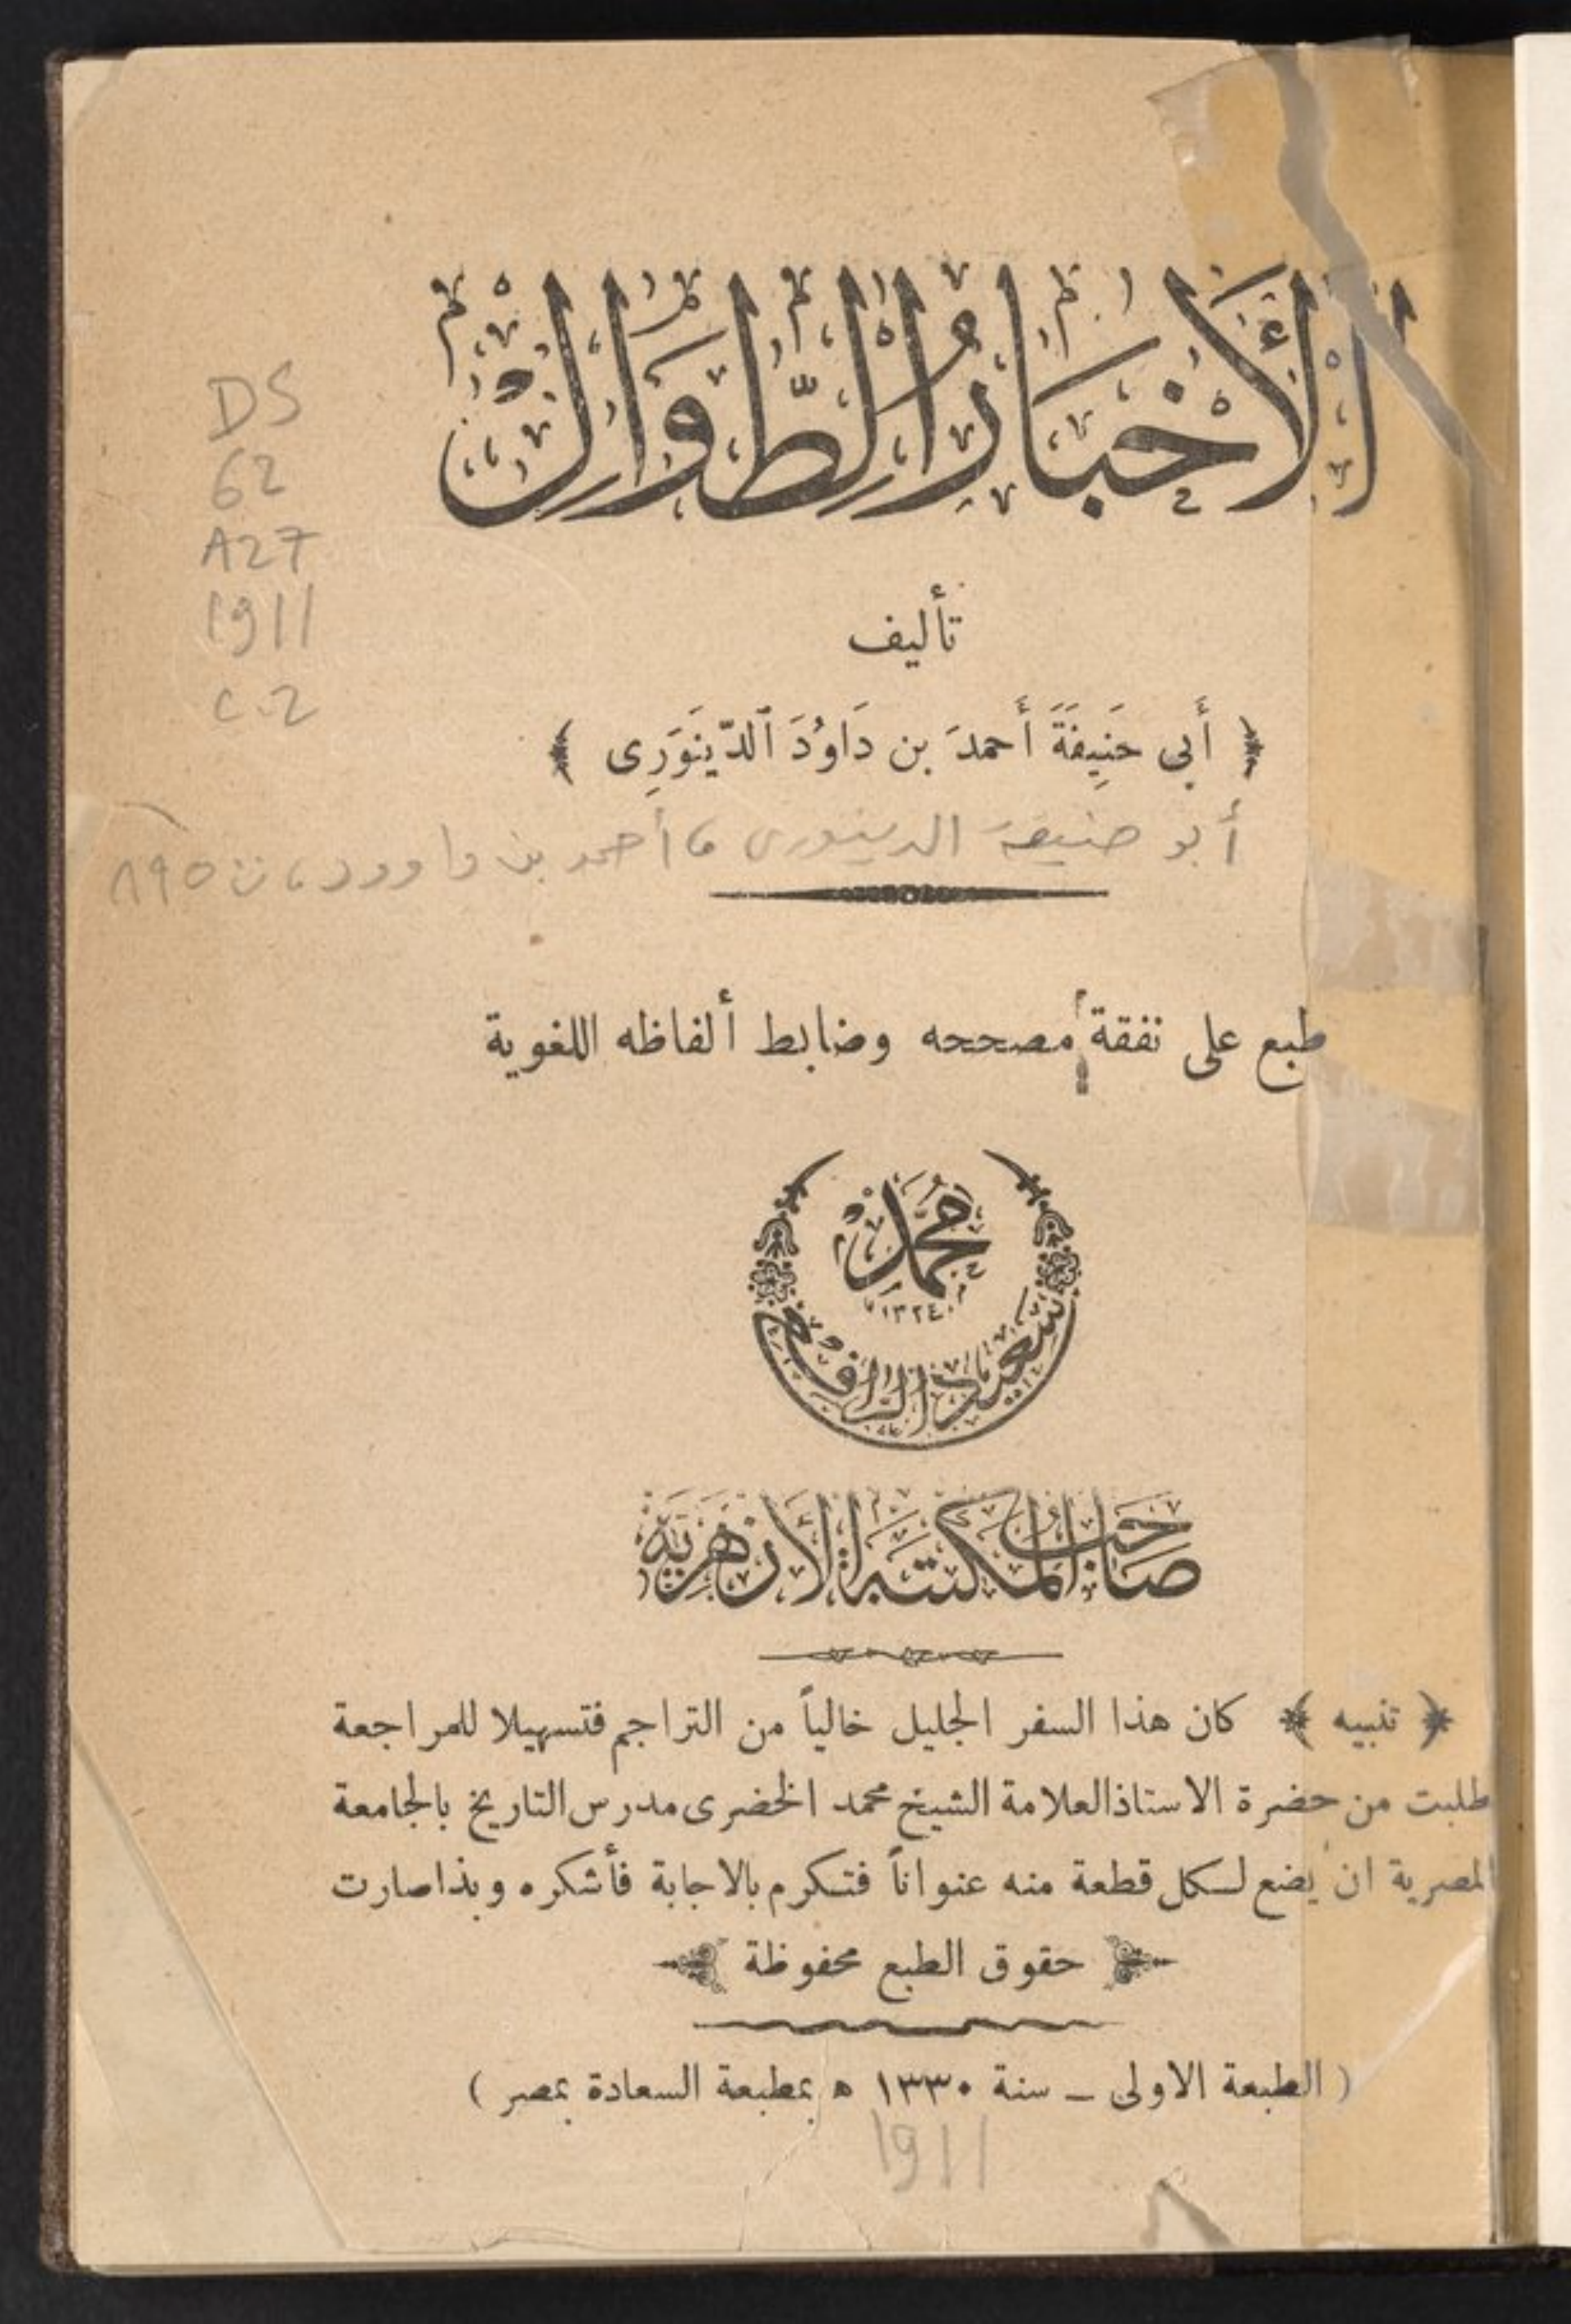 الأَخبَارُ الطِّوَالْ
DS
62
A27
1911
c.2
تأليف
﴿ أَبى حَنِيفَةَ أَحمدَ بن دَاوُدَ ٱلدّينَوَرِى ﴾
أبو حنيفة الدينورى ، أحمد بن داوود ، ت ٨٩٥
طبع على نفقة مصححه وضابط ألفاظه اللغوية
محمد
١٣٢٤
سعيد الرافعى
صاحب المكتبة الأزهرية
﴿ تنبيه ﴾ كان هذا السفر الجليل خالياً من التراجم فتسهيلا للمراجعة
طلبت من حضرة الاستاذ العلامة الشيخ محمد الخضرى مدرس التاريخ بالجامعة
المصرية ان يضع لكل قطعة منه عنواناً فتكرم بالاجابة فأشكره وبذا صارت
حقوق الطبع محفوظة
( الطبعة الاولى ــ سنة ١٣٣٠ ه بمطبعة السعادة بمصر )
1911